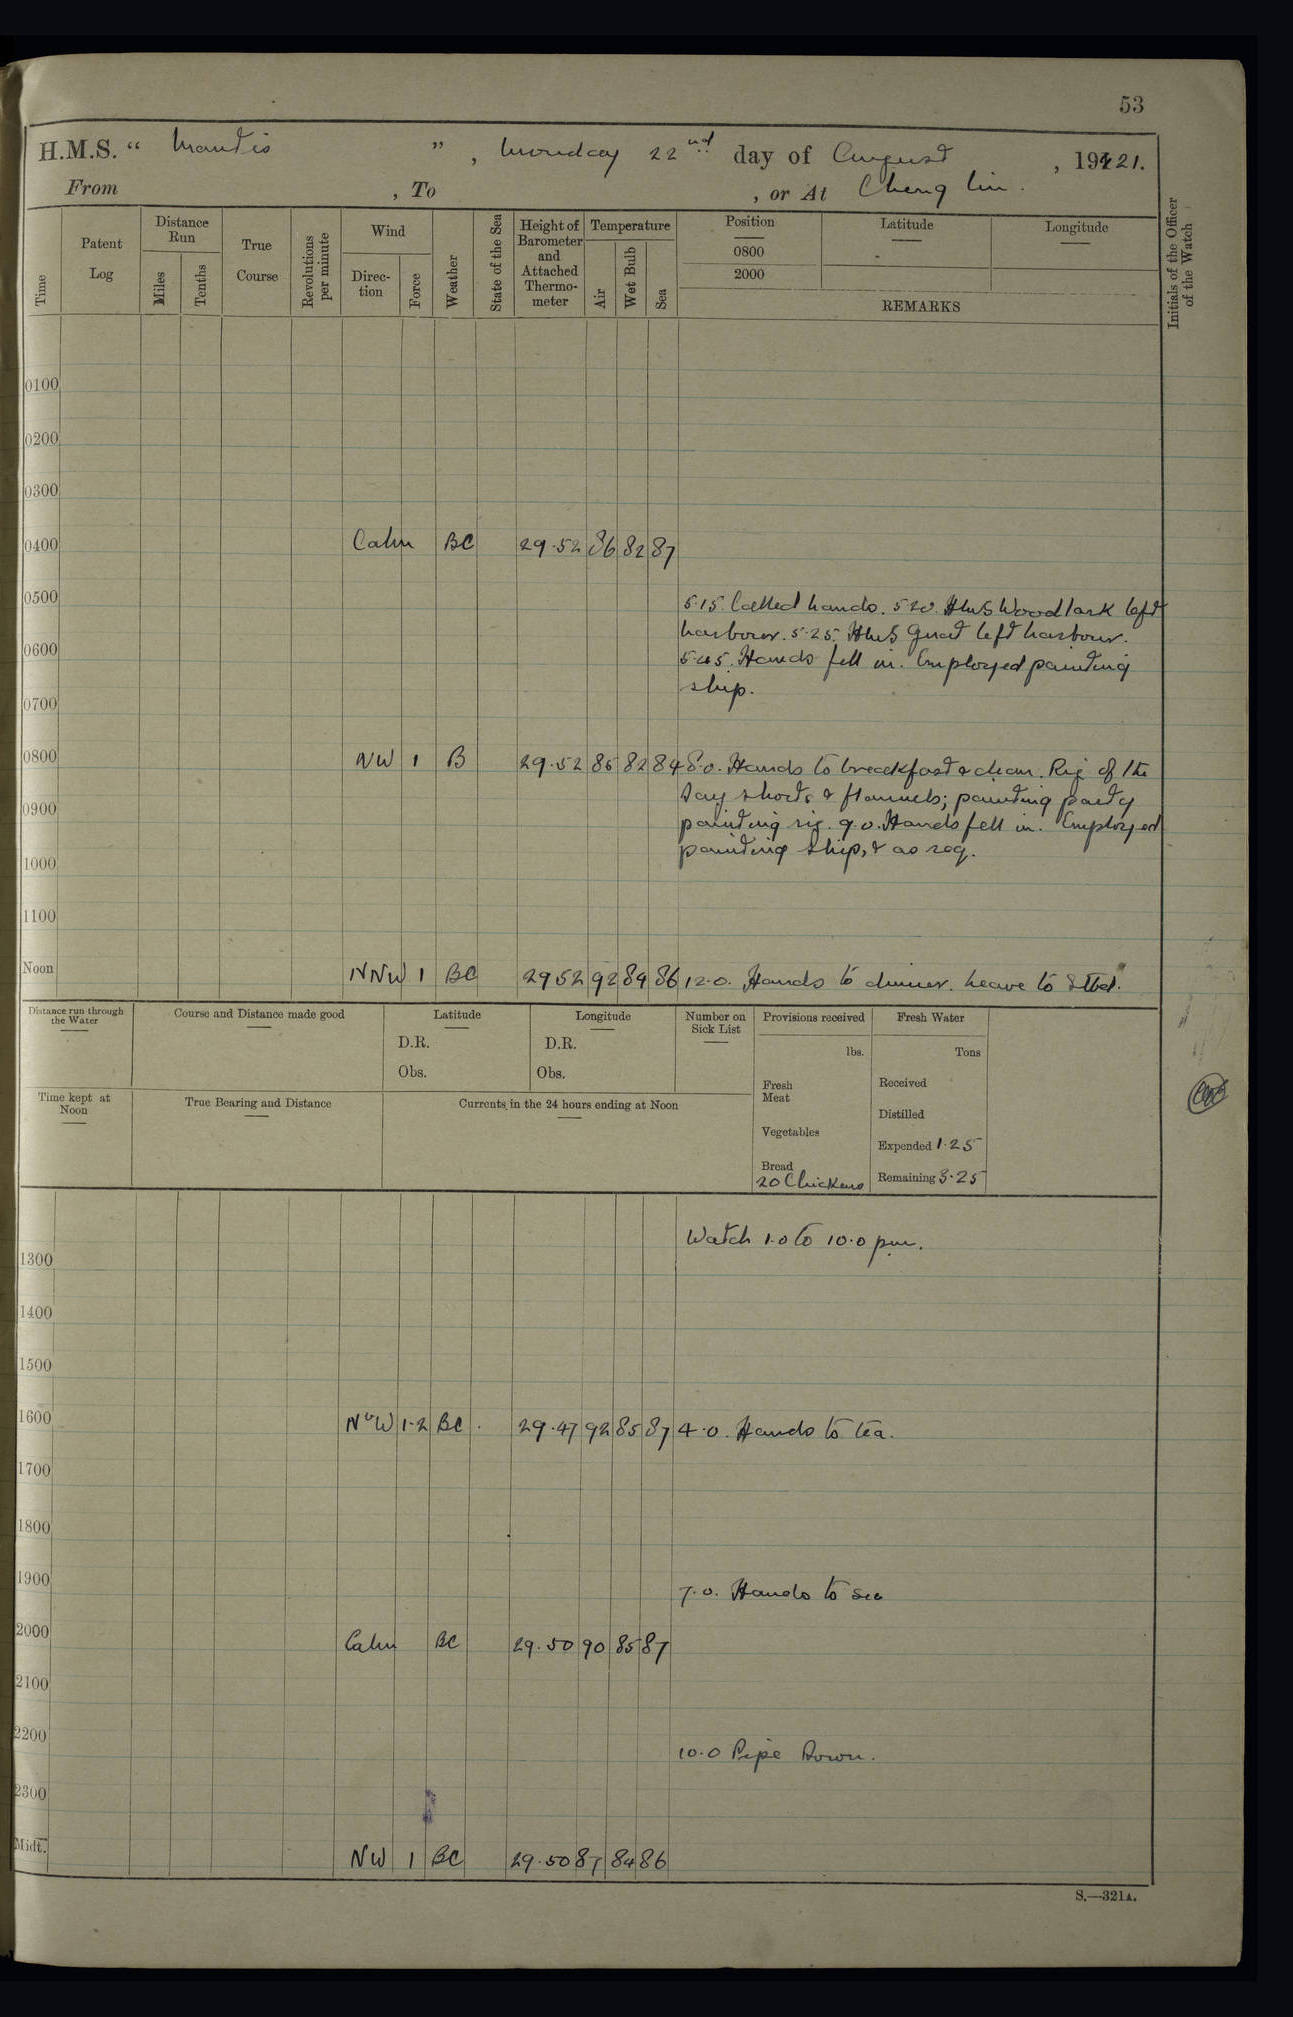 53
H.M.S. “ Mantis ” , Monday 22nd day of August , 1921.
From , To , or At Cheng lin.
Time
Patent Log
Distance Run
Miles
Tenths
True Course
Revolutions per minute
Wind
Direc- tion
Force
Weather
State of the Sea
Height of Barometer and Attached Thermo- meter
Temperature
Air
Wet Bulb
Sea
Position
0800
2000
Latitude
Longitude
REMARKS
Initials of the Officer of the Watch
0100
0200
0300
0400 Calm BC 29.52 86 82 87
0500 5.15. Called hands. 5.20. HMS Woodlark left
harbour. 5.25. HMS Gnat left harbour.
0600 5.45. Hands fell in. Employed painting
ship.
0700
0800 NW 1 B 29.52 85 82 84 8.0. Hands to breakfast & clean. Rig of the
day shorts & flannels; painting party
0900 painting rig. 9.0. Hands fell in. Employed
painting ship, & as req.
1000
1100
Noon NNW 1 BC 29 52 92 84 86 12.0. Hands to dinner. Leave to Stbd.
Distance run through the Water
Course and Distance made good
Latitude
D.R.
Obs.
Longitude
D.R.
Obs.
Number on Sick List
Provisions received
lbs.
Fresh Meat
Vegetables
Bread
20 Chickens
Fresh Water
Tons
Received
Distilled
Expended 1.25
Remaining 3.25
Time kept at Noon
True Bearing and Distance
Currents in the 24 hours ending at Noon
Watch 1.0 to 10.0 pm.
1300
1400
1500
1600 N'W 1-2 BC 29.47 92 85 87 4.0. Hands to tea.
1700
1800
1900 7.0. Hands to
2000 Calm BC 29.50 90 85 87
2100
2200 10.0 Pipe Down.
2300
Midt. NW 1 BC 29.50 87 84 86
S.—321A.